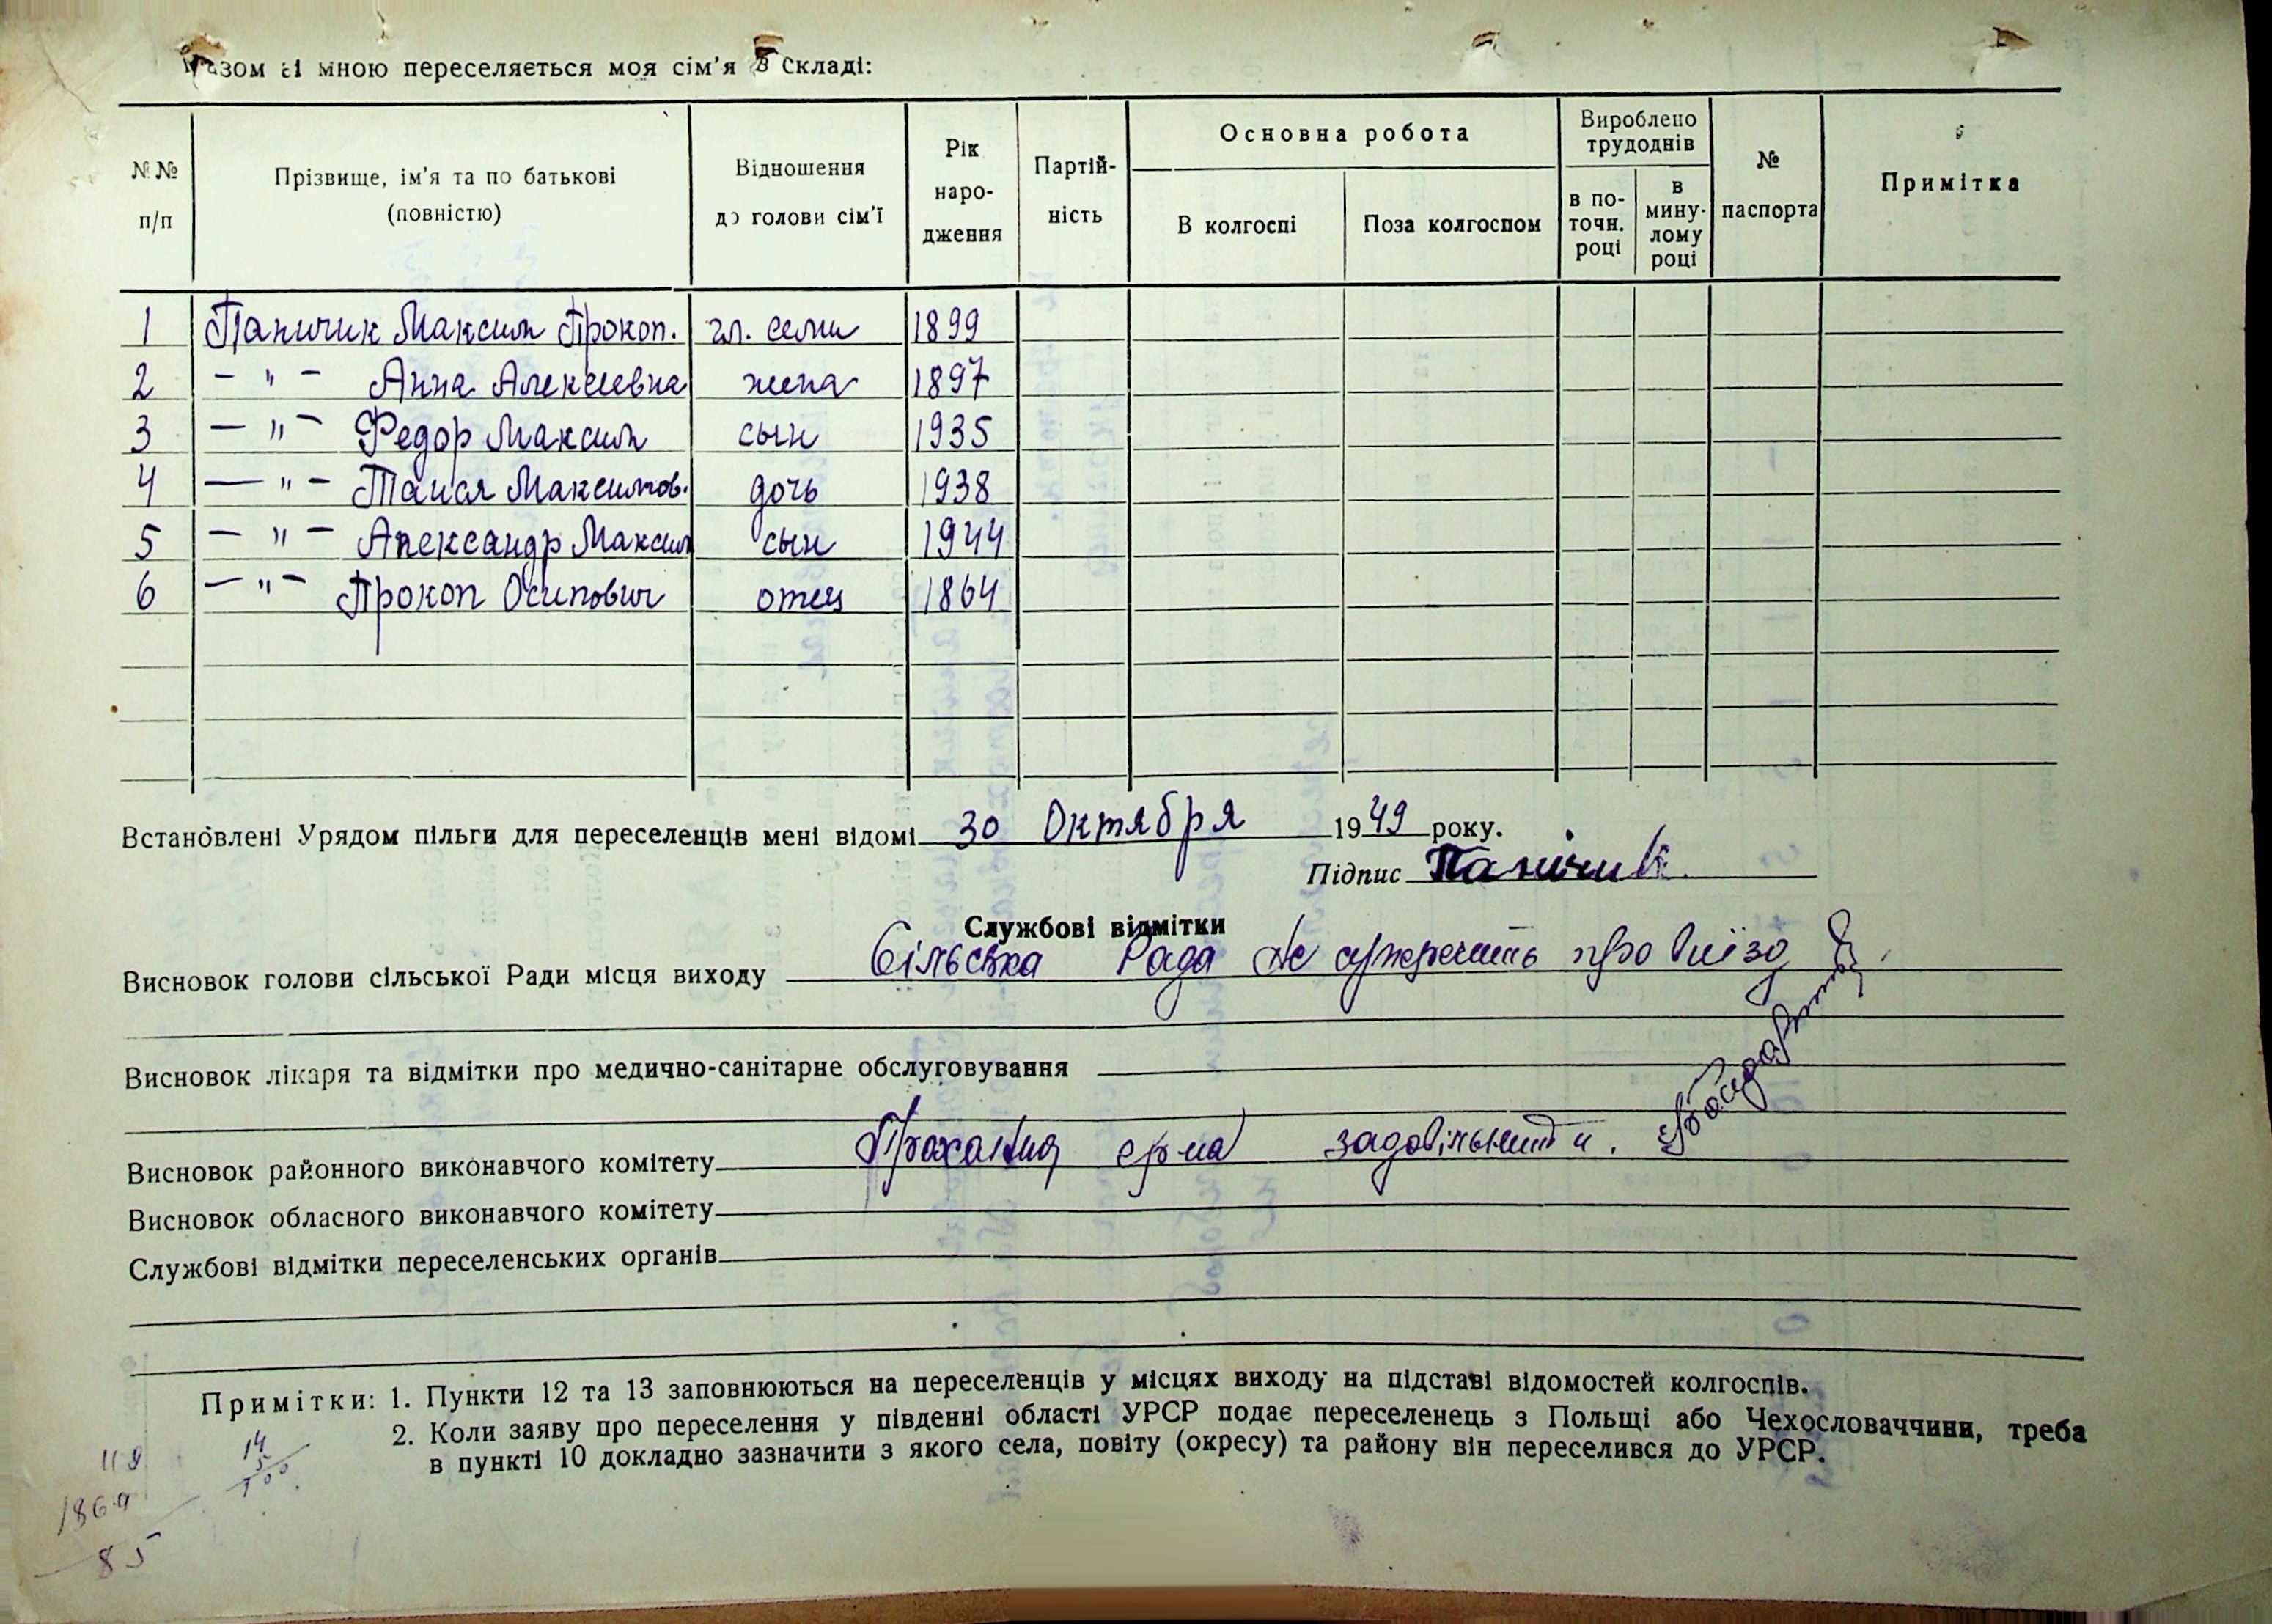 Разом зі мною переселяється моя сім'я в складі:
№№ п/п | Прізвище, ім'я та по батькові (повністю) | Відношення до голови сім'ї | Рік народження | Партійність | Основна робота | Вироблено трудоднів | № паспорта | Примітка
В колгоспі | Поза колгоспом | в поточн. році | в минулому році
1 Паничик Максим Прокоп. гл. семи 1899
2 — " — Анна Алексеевна жена 1897
3 — " — Федор Максим сын 1935
4 — " — Таися Максимов. дочь 1938
5 — " — Александр Максим сын 1944
6 — " — Прокоп Осипович отец 1864
Встановлені Урядом пільги для переселенців мені відомі 30 Октября 1949 року.
Підпис Панічик.
Службові відмітки
Висновок голови сільської Ради місця виходу Сільська Рада не суперечить про виїзд
Висновок лікаря та відмітки про медично-санітарне обслуговування
Висновок районного виконавчого комітету Прохання задовільнити.
Висновок обласного виконавчого комітету
Службові відмітки переселенських органів
Примітки: 1. Пункти 12 та 13 заповнюються на переселенців у місцях виходу на підставі відомостей колгоспів.
2. Коли заяву про переселення у південні області УРСР подає переселенець з Польщі або Чехословаччини, треба
в пункті 10 докладно зазначити з якого села, повіту (окресу) та району він переселився до УРСР.
1864
85